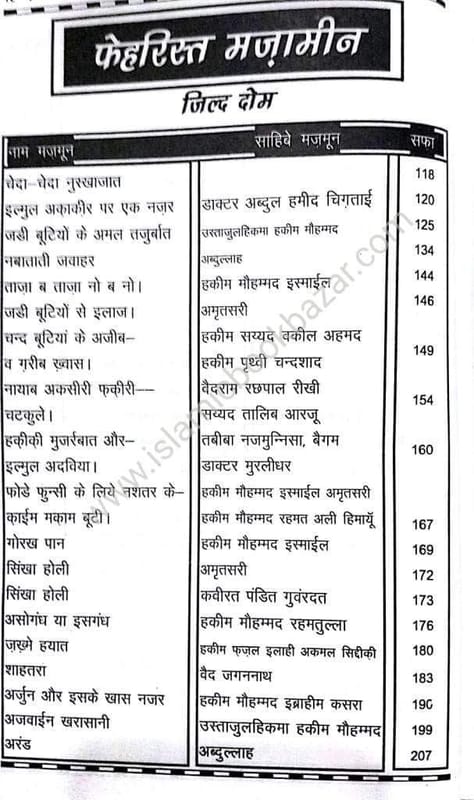 फेहरिस्त मज़ामीन
जिल्द दोम
नाम मज़मून साहिबे मज़मून सफ़ा
118
चेदा-चेदा नुस्खाजात
इल्मुल अक़ाकीर पर एक नज़र डाक्टर अब्दुल हमीद चिग़ताई 120
जडी बूटियों के अमल तजुर्बात उस्ताजुलहिकमा हकीम मौहम्मद 125
नबाताती जवाहर अब्दुल्लाह 134
ताज़ा ब ताज़ा नो ब नो। हकीम मौहम्मद इस्माईल 144
जडी बूटियों से इलाज। अमृतसरी 146
चन्द बूटियां के अजीब- हकीम सय्यद वकील अहमद
व ग़रीब ख़्वास। हकीम पृथ्वी चन्दशाद 149
नायाब अकसीरी फ़कीरी-- वैदराम रछपाल रीखी
चटकुले। सय्यद तालिब आरजू 154
हक़ीक़ी मुजर्रबात और- तबीबा नजमुन्निसा, बैगम
इल्मुल अदविया। डाक्टर मुरलीधर 160
फोडे फुन्सी के लिये नशतर के- हकीम मौहम्मद इस्माईल अमृतसरी
क़ाईम मक़ाम बूटी। हकीम मौहम्मद रहमत अली हिमायूँ 167
गोरख पान हकीम मौहम्मद इस्माईल 169
सिंखा होली अमृतसरी 172
सिंखा होली कवीरत पंडित गुवंरदत 173
असोगंध या इसगंध हकीम मौहम्मद रहमतुल्ला 176
ज़ख़्मे हयात हकीम फ़ज़ल इलाही अकमल सिद्दीक़ी 180
शाहतरा वैद जगननाथ 183
अर्जुन और इसके खास नजर हकीम मौहम्मद इब्राहीम कसरा 190
अजवाईन खरासानी उस्ताजुलहिकमा हकीम मौहम्मद 199
अरंड अब्दुल्लाह 207
www.islamicbookbazar.com